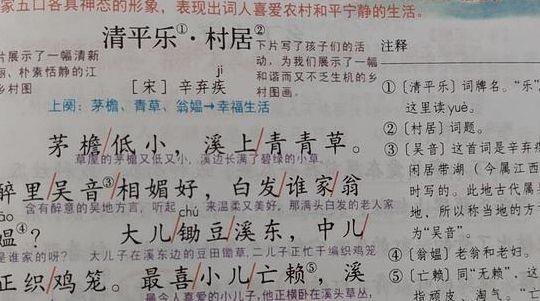 家五口各具神态的形象，表现出词人喜爱农村和平宁静的生活。
清平乐①·村居②
片展示了一幅清新
、朴素恬静的江
乡村图
下片写了孩子们的活
动，为我们展示了一幅
和谐而又不乏生机的乡
村图画。
jí
［宋］辛弃疾
上阕：茅檐、青草、翁媪→幸福生活
茅檐/低小，溪上/青青草。
草屋的茅檐又低又小，溪边长满了碧绿的小草。
醉里吴音③/相媚好，白发/谁家/翁
含有醉意的吴地方言，听起来温柔又美好，那满头白发的老人家
ǎo chú
媪④？大儿/锄豆/溪东，中儿/
是谁家的呀？大儿子在溪东边的豆田锄草，二儿子正忙于编织鸡笼
正织/鸡笼。最喜/小儿/亡赖⑤，溪
最令人喜爱的小儿子，他正横卧在溪头草丛，
注释
①［清平乐］词牌名。“乐”
这里读yuè。
②［村居］词题。
③［吴音］这首词是辛弃疾
闲居带湖（今属江西
时写的。此地古代属
地，所以称当地的方
为“吴音”。
④［翁媪］老翁和老妇。
⑤［亡赖］同“无赖”，这
指顽皮、淘气。“亡